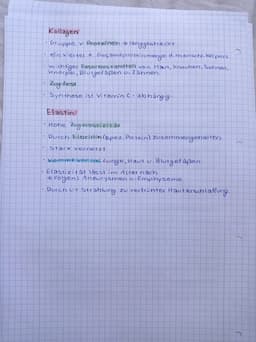 Kollagen
· Gruppe v. Proteinen → langgestreckt
· ein Viertel d. Gesamtproteinmenge d. menschl. Körpers
· wichtiger Faserbestandteil von Haut, Knochen, Sehnen,
Knorpel, Blutgefäßen u. Zähnen
· Zugfest
· Synthese ist Vitamin C - abhängig
Elastin
· Hohe Zugelastizität
· Durch Fibrillin (spez. Protein) zusammengehalten
· Stark vernetzt
· Vorkommen: Lunge, Haut u. Blutgefäßen
· Elastizität lässt im Alter nach
→ Folgen: Aneurysmen u. Emphyseme
· Durch UV-Strahlung zu verfrühter Hauterschlaffung